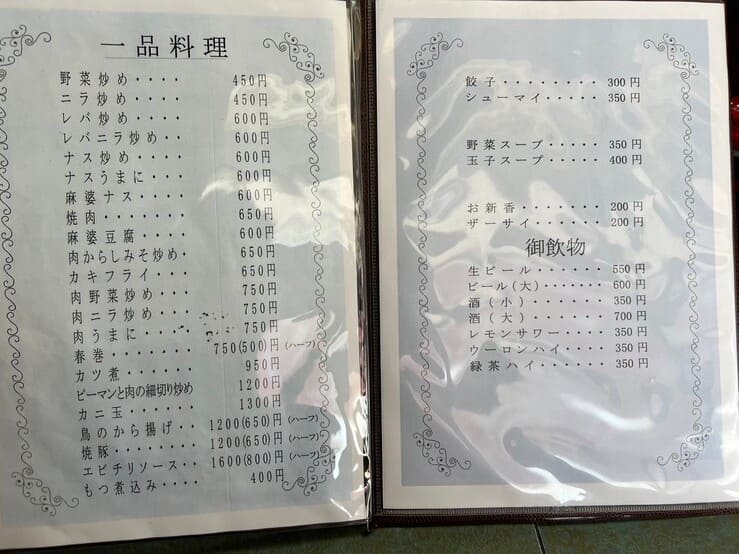 一品料理
野菜炒め・・・・ 450円
ニラ炒め・・・・ 450円
レバ炒め・・・・ 600円
レバニラ炒め・・ 600円
ナス炒め・・・・ 600円
ナスうまに・・・ 600円
麻婆ナス・・・・ 600円
焼肉・・・・・・・ 650円
麻婆豆腐・・・・ 600円
肉からしみそ炒め・ 650円
カキフライ・・・ 650円
肉野菜炒め・・・ 750円
肉ニラ炒め・・・ 750円
肉うまに・・・・ 750円
春巻・・・・・・・ 750(500)円(ハーフ)
カツ煮・・・・・・ 950円
ピーマンと肉の細切り炒め 1200円
カニ玉・・・・・・ 1300円
鳥のから揚げ・・ 1200(650)円(ハーフ)
焼豚・・・・・・・ 1200(650)円(ハーフ)
エビチリソース・・ 1600(800)円(ハーフ)
もつ煮込み・・・・ 400円
餃子・・・・・・・・ 300円
シューマイ・・・・・ 350円
野菜スープ・・・・・ 350円
玉子スープ・・・・・ 400円
お新香・・・・・・・ 200円
ザーサイ・・・・・・ 200円
御飲物
生ビール・・・・・・ 550円
ビール(大)・・・・・ 600円
酒(小)・・・・・・・ 350円
酒(大)・・・・・・・ 700円
レモンサワー・・・・ 350円
ウーロンハイ・・・・ 350円
緑茶ハイ・・・・・・ 350円